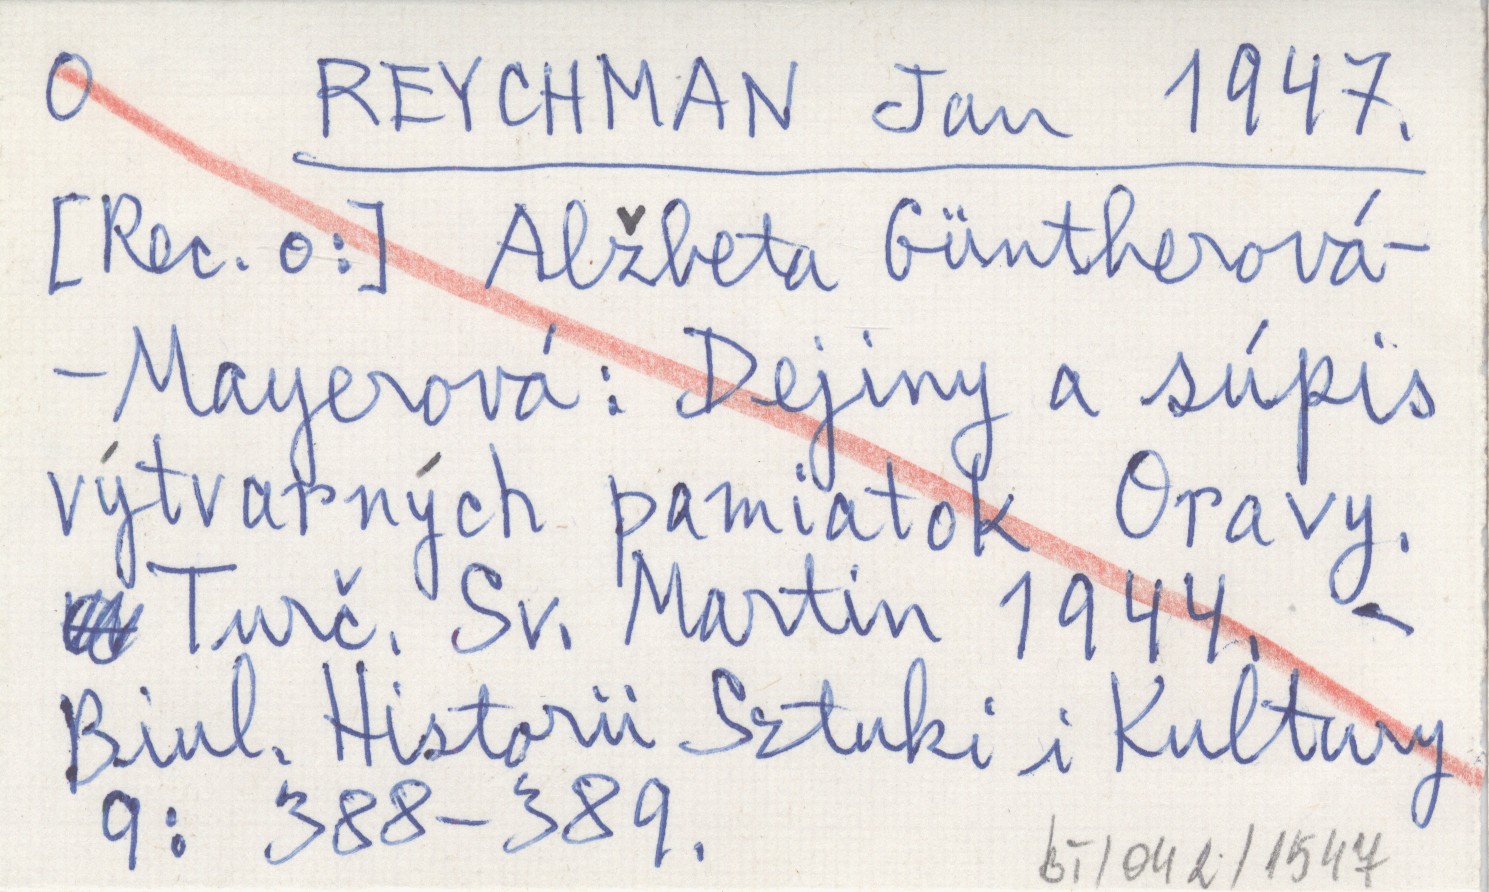 O REYCHMAN Jan 1947.
[Rec. o:] Alžbeta Güntherová-
-Mayerová: Dejiny a súpis
výtvarných pamiatok Oravy.
Turč. Sv. Martin 1944. -
Biul. Historii Sztuki i Kultury
9: 388-389.
bT/042/1547